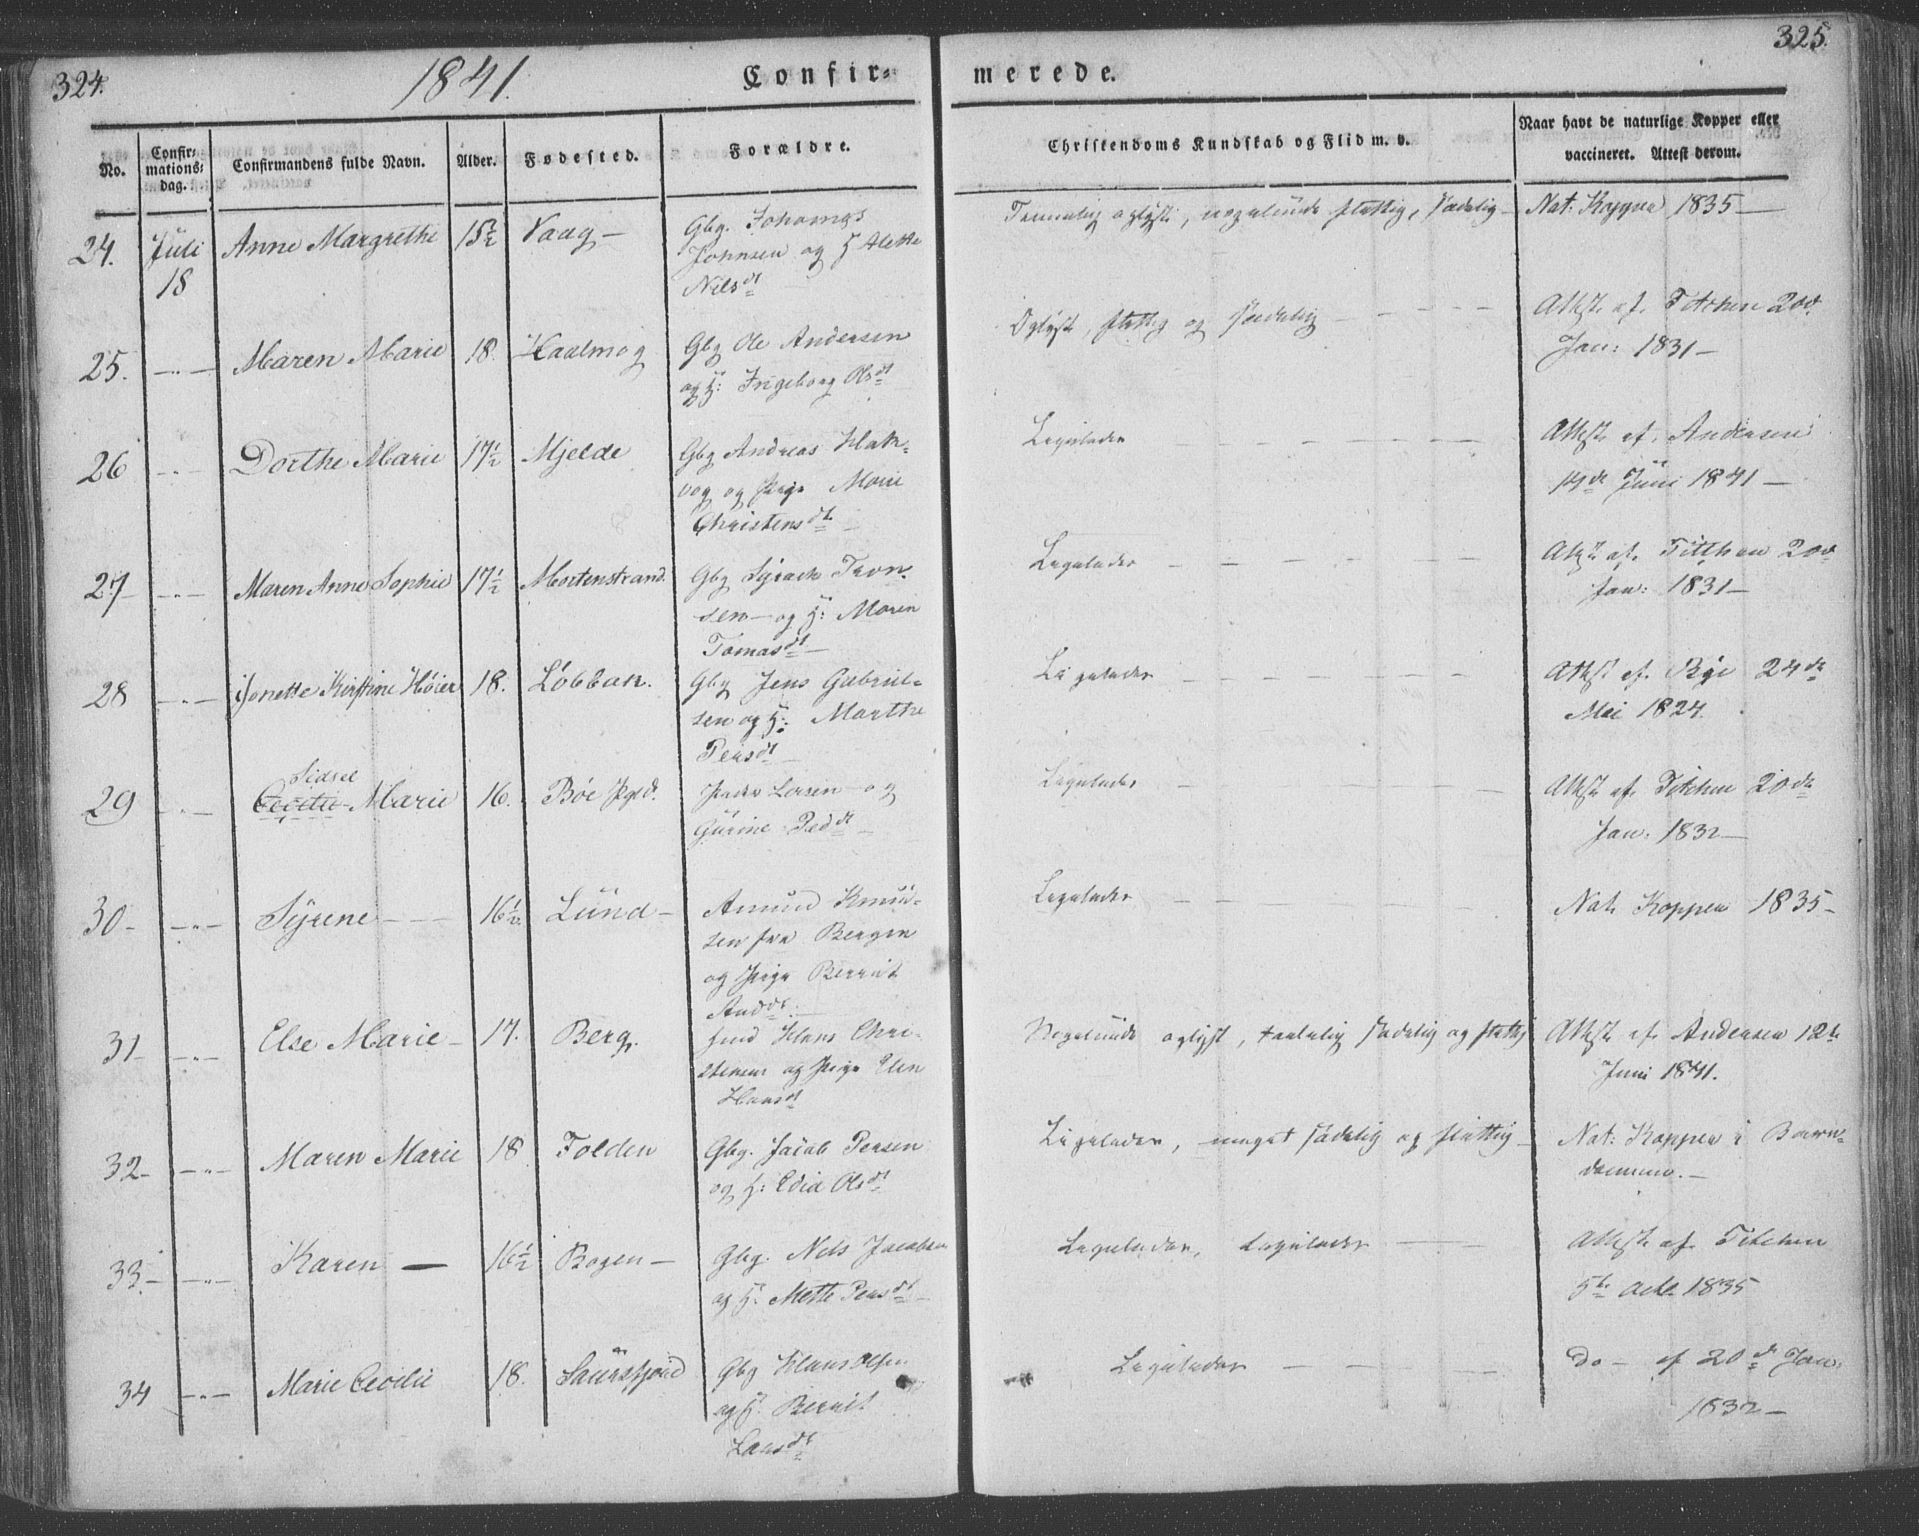 324.
1841.
Confir-
merede.
325.
No.
Confir-
mations-
dag.
Confirmandens fulde Navn.
Alder.
Fødested.
Forældre.
Christendoms Kundskab og Flid m. v.
Naar havt de naturlige Kopper eller
vaccineret. Attest derom.
24. Juli Anne Margrethe 15½ Vaag — Gbg. Johannes
18
Johnsen og H Alette
Nilsdt
nogenlunde flittig, sædelig — Nat: Kopper 1835 —
25. — " — Maren Marie 18. Gbg Ole Andersen
og H: Ingeborg Olsdt
Oplyst, flittig og sædelig — Attest af Titchen 20de
Jan: 1831 —
26 — " — Dorthe Marie 17½ Mjelde Gbg Andreas
og Pige Marie
Christensdt
Ligeledes — Attest af Andersen
Juni 1841 —
27 — " — Maren Anne Sophie 17½ Mortenstrand. Gbg Sÿrach Tron-
sen — og H: Maren
Tomasdt
Ligeledes — Attest af Titchen 20de
Jan: 1831 —
28 — " — Jonette Kirstine Høier 18. Løbbak. Gbg Jens Gabriel-
sen og H: Marthe
Persdt
Ligeledes — Attest af Bÿe 24de
Mai 1824.
29 — " — Sidsel
Cecilie Marie 16. Bøe Pgsd. Peder Larsen og
Gurine Peddt
Ligeledes — Attest af Titchen 20de
Jan: 1832 —
30 — " — Sÿrene — 16½ Lund — Amund Knud-
sen fra Bergen
og Pige Berrit
Anddt
Ligeledes — Nat. Kopper 1835 —
31 — " — Else Marie — 17. Berg. Hans Chri-
stensen og Pige Elen
Hansdt
Nogenlunde oplyst, sædelig og flittig Attest af Andersen 12te
Juni 1841.
32 — " — Maren Marie 18 Folden Gbg. Jacob Persen
og H: Edia Olsdt
Ligeledes, meget sædelig og flittig — Nat: Kopper i Barn-
dommen. —
33 — " — Karen — 16½ Bogen — Gbg. Nels Jacobsen
og H. Mette Persdt
Ligeledes, Ligeledes — Attest af Titchen
5te Octb. 1835
34 — " — Marie Cecilie 18. Saursfjord Gbg Hans Olsen
og H. Berrit
Larsdt
Ligeledes — Do — af 20de Jan:
1832 —